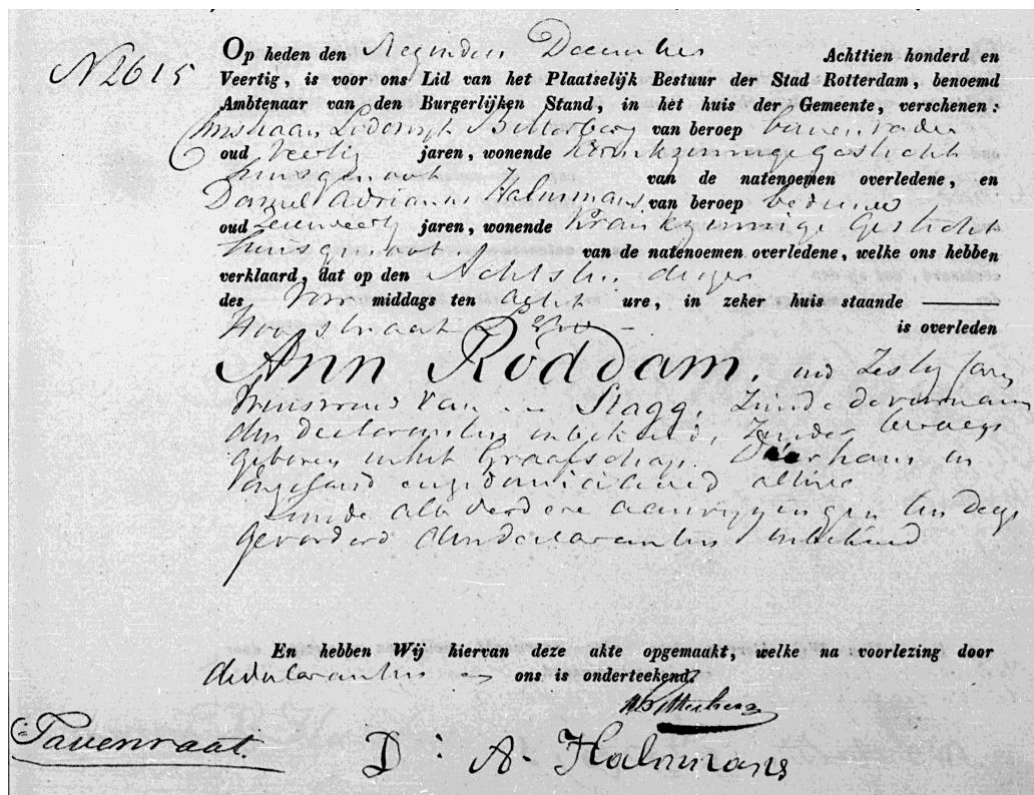 N 2615
Op heden den Negenden December Achttien honderd en
Veertig, is voor ons Lid van het Plaatselijk Bestuur der Stad Rotterdam, benoemd
Ambtenaar van den Burgerlijken Stand, in het huis der Gemeente, verschenen:
Christiaan Lodewijk Bitterberg van beroep binnenvader
oud Veertig jaren, wonende Krankzinnige gesticht
huisgenoot van de natenoemen overledene, en
Daniel Adrianus Halnmans van beroep bediende
oud jaren, wonende Krankzinnige Gesticht
huisgenoot van de natenoemen overledene, welke ons hebben
verklaard, dat op den Achtsten dezer
des Voor middags ten acht ure, in zeker huis staande
Hoogstraat is overleden
Ann Roddam, oud Zestig Jaren
huisvrouw van Stagg, Zijnde de voornaam
den declaranten onbekend, Zonder beroep
geboren in het Graafschap Duurham in
Engeland en gedomicilieerd alhier
Zijnde alle verdere aanwijzingen ten deze
gevorderd den declaranten onbekend
En hebben Wij hiervan deze akte opgemaakt, welke na voorlezing door
de declaranten en ons is onderteekend.
Tavenraat.
D: A. Halnmans